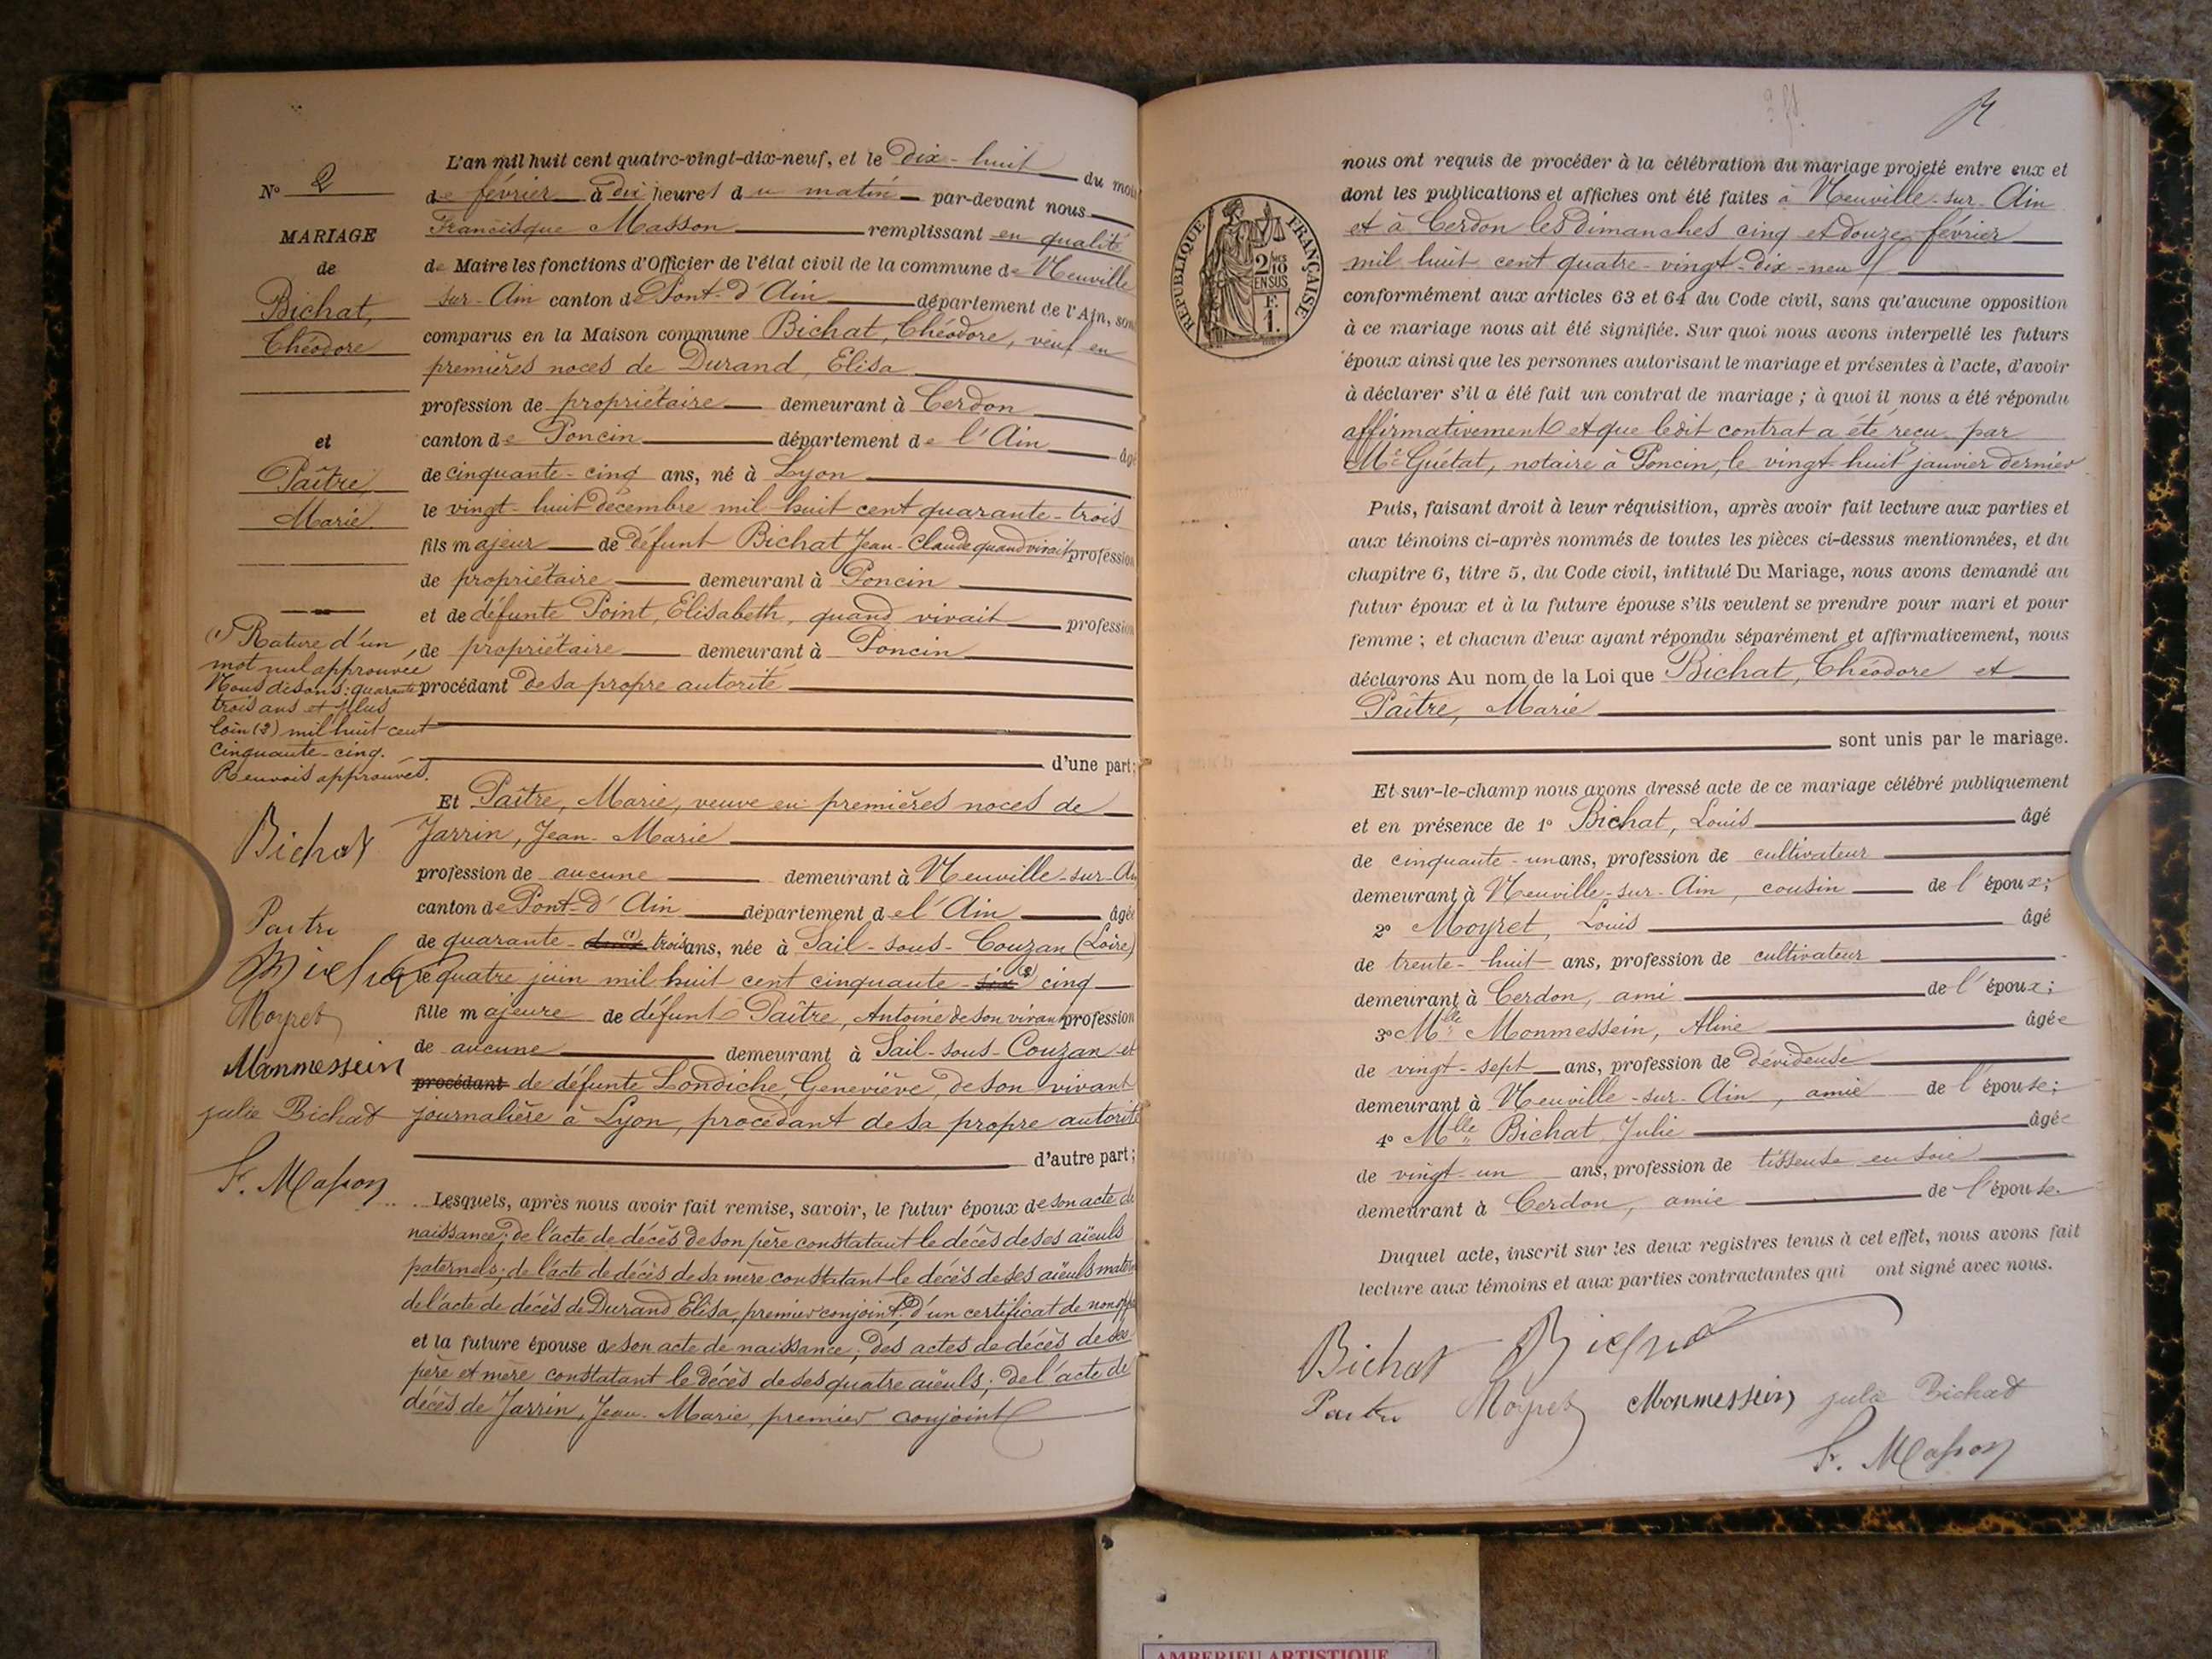 N° 2
MARIAGE
de
Bichat,
Théodore
et
Paître,
Marie
(1) Rature d'un
mot nul approuvée
Nous disons: quarante
trois ans et plus
loin (2) mil huit cent
cinquante-cinq.
Renvois approuvés.
Bichat
Paitre
Bichat
Moyret
Monmessein
julie Bichat
F. Masson
L'an mil huit cent quatre-vingt-dix-neuf, et le dix-huit du mois
de février à dix heures du matin par-devant nous
Francisque Masson remplissant en qualité
de Maire les fonctions d'Officier de l'état civil de la commune de Neuville
sur-Ain canton de Pont-d'Ain département de l'Ain, sont
comparus en la Maison commune Bichat, Théodore, veuf en
premières noces de Durand, Elisa
profession de propriétaire demeurant à Cerdon
canton de Poncin département de l'Ain âgé
de cinquante-cinq ans, né à Lyon
le vingt-huit décembre mil huit cent quarante-trois
fils majeur de défunt Bichat Jean-Claude quand vivait profession
de propriétaire demeurant à Poncin
et de défunte Point, Elisabeth, quand vivait profession
de propriétaire demeurant à Poncin
procédant de sa propre autorité
d'une part;
Et Paître, Marie, veuve en premières noces de
Jarrin, Jean-Marie
profession de aucune demeurant à Neuville-sur-Ain
canton de Pont-d'Ain département de l'Ain âgée
de quarante-deux (1) trois ans, née à Sail-sous-Couzan (Loire)
le quatre juin mil huit cent cinquante-six (2) cinq
fille majeure de défunt Paître, Antoine de son vivant profession
de aucune demeurant à Sail-sous-Couzan et
procédant de défunte Londiche, Geneviève, de son vivant
journalière à Lyon, procédant de sa propre autorité
d'autre part;
Lesquels, après nous avoir fait remise, savoir, le futur époux de son acte de
naissance; de l'acte de décès de son père constatant le décès de ses aïeuls
paternels; de l'acte de décès de sa mère constatant le décès de ses aïeuls matern
de l'acte de décès de Durand Elisa, premier conjoint; d'un certificat de non opp
et la future épouse de son acte de naissance; des actes de décès de ses
père et mère constatant le décès de ses quatre aïeuls; de l'acte de
décès de Jarrin, Jean-Marie, premier conjoint
RÉPUBLIQUE FRANÇAISE
2/10
EN SUS
F.
1.
nous ont requis de procéder à la célébration du mariage projeté entre eux et
dont les publications et affiches ont été faites à Neuville-sur-Ain
et à Cerdon les dimanches cinq et douze février
mil huit cent quatre-vingt-dix-neuf
conformément aux articles 63 et 64 du Code civil, sans qu'aucune opposition
à ce mariage nous ait été signifiée. Sur quoi nous avons interpellé les futurs
époux ainsi que les personnes autorisant le mariage et présentes à l'acte, d'avoir
à déclarer s'il a été fait un contrat de mariage; à quoi il nous a été répondu
affirmativement et que ledit contrat a été reçu par
Me Guétat, notaire à Poncin, le vingt-huit janvier dernier
Puis, faisant droit à leur réquisition, après avoir fait lecture aux parties et
aux témoins ci-après nommés de toutes les pièces ci-dessus mentionnées, et du
chapitre 6, titre 5, du Code civil, intitulé Du Mariage, nous avons demandé au
futur époux et à la future épouse s'ils veulent se prendre pour mari et pour
femme; et chacun d'eux ayant répondu séparément et affirmativement, nous
déclarons Au nom de la Loi que Bichat, Théodore et
Paître, Marie
sont unis par le mariage.
Et sur-le-champ nous avons dressé acte de ce mariage célébré publiquement
et en présence de 1° Bichat, Louis âgé
de cinquante-un ans, profession de cultivateur
demeurant à Neuville-sur-Ain, cousin de l'époux;
2° Moyret, Louis âgé
de trente-huit ans, profession de cultivateur
demeurant à Cerdon, ami de l'époux;
3° Melle Monmessein, Aline âgée
de vingt-sept ans, profession de dévideuse
demeurant à Neuville-sur-Ain, amie de l'épouse;
4° Mlle Bichat, Julie âgée
de vingt-un ans, profession de tisseuse en soie
demeurant à Cerdon, amie de l'épouse.
Duquel acte, inscrit sur les deux registres tenus à cet effet, nous avons fait
lecture aux témoins et aux parties contractantes qui ont signé avec nous.
Bichat Bichat
Paitre Moyret Monmessein julie Bichat
F. Masson
AMBERIEU ARTISTIQUE